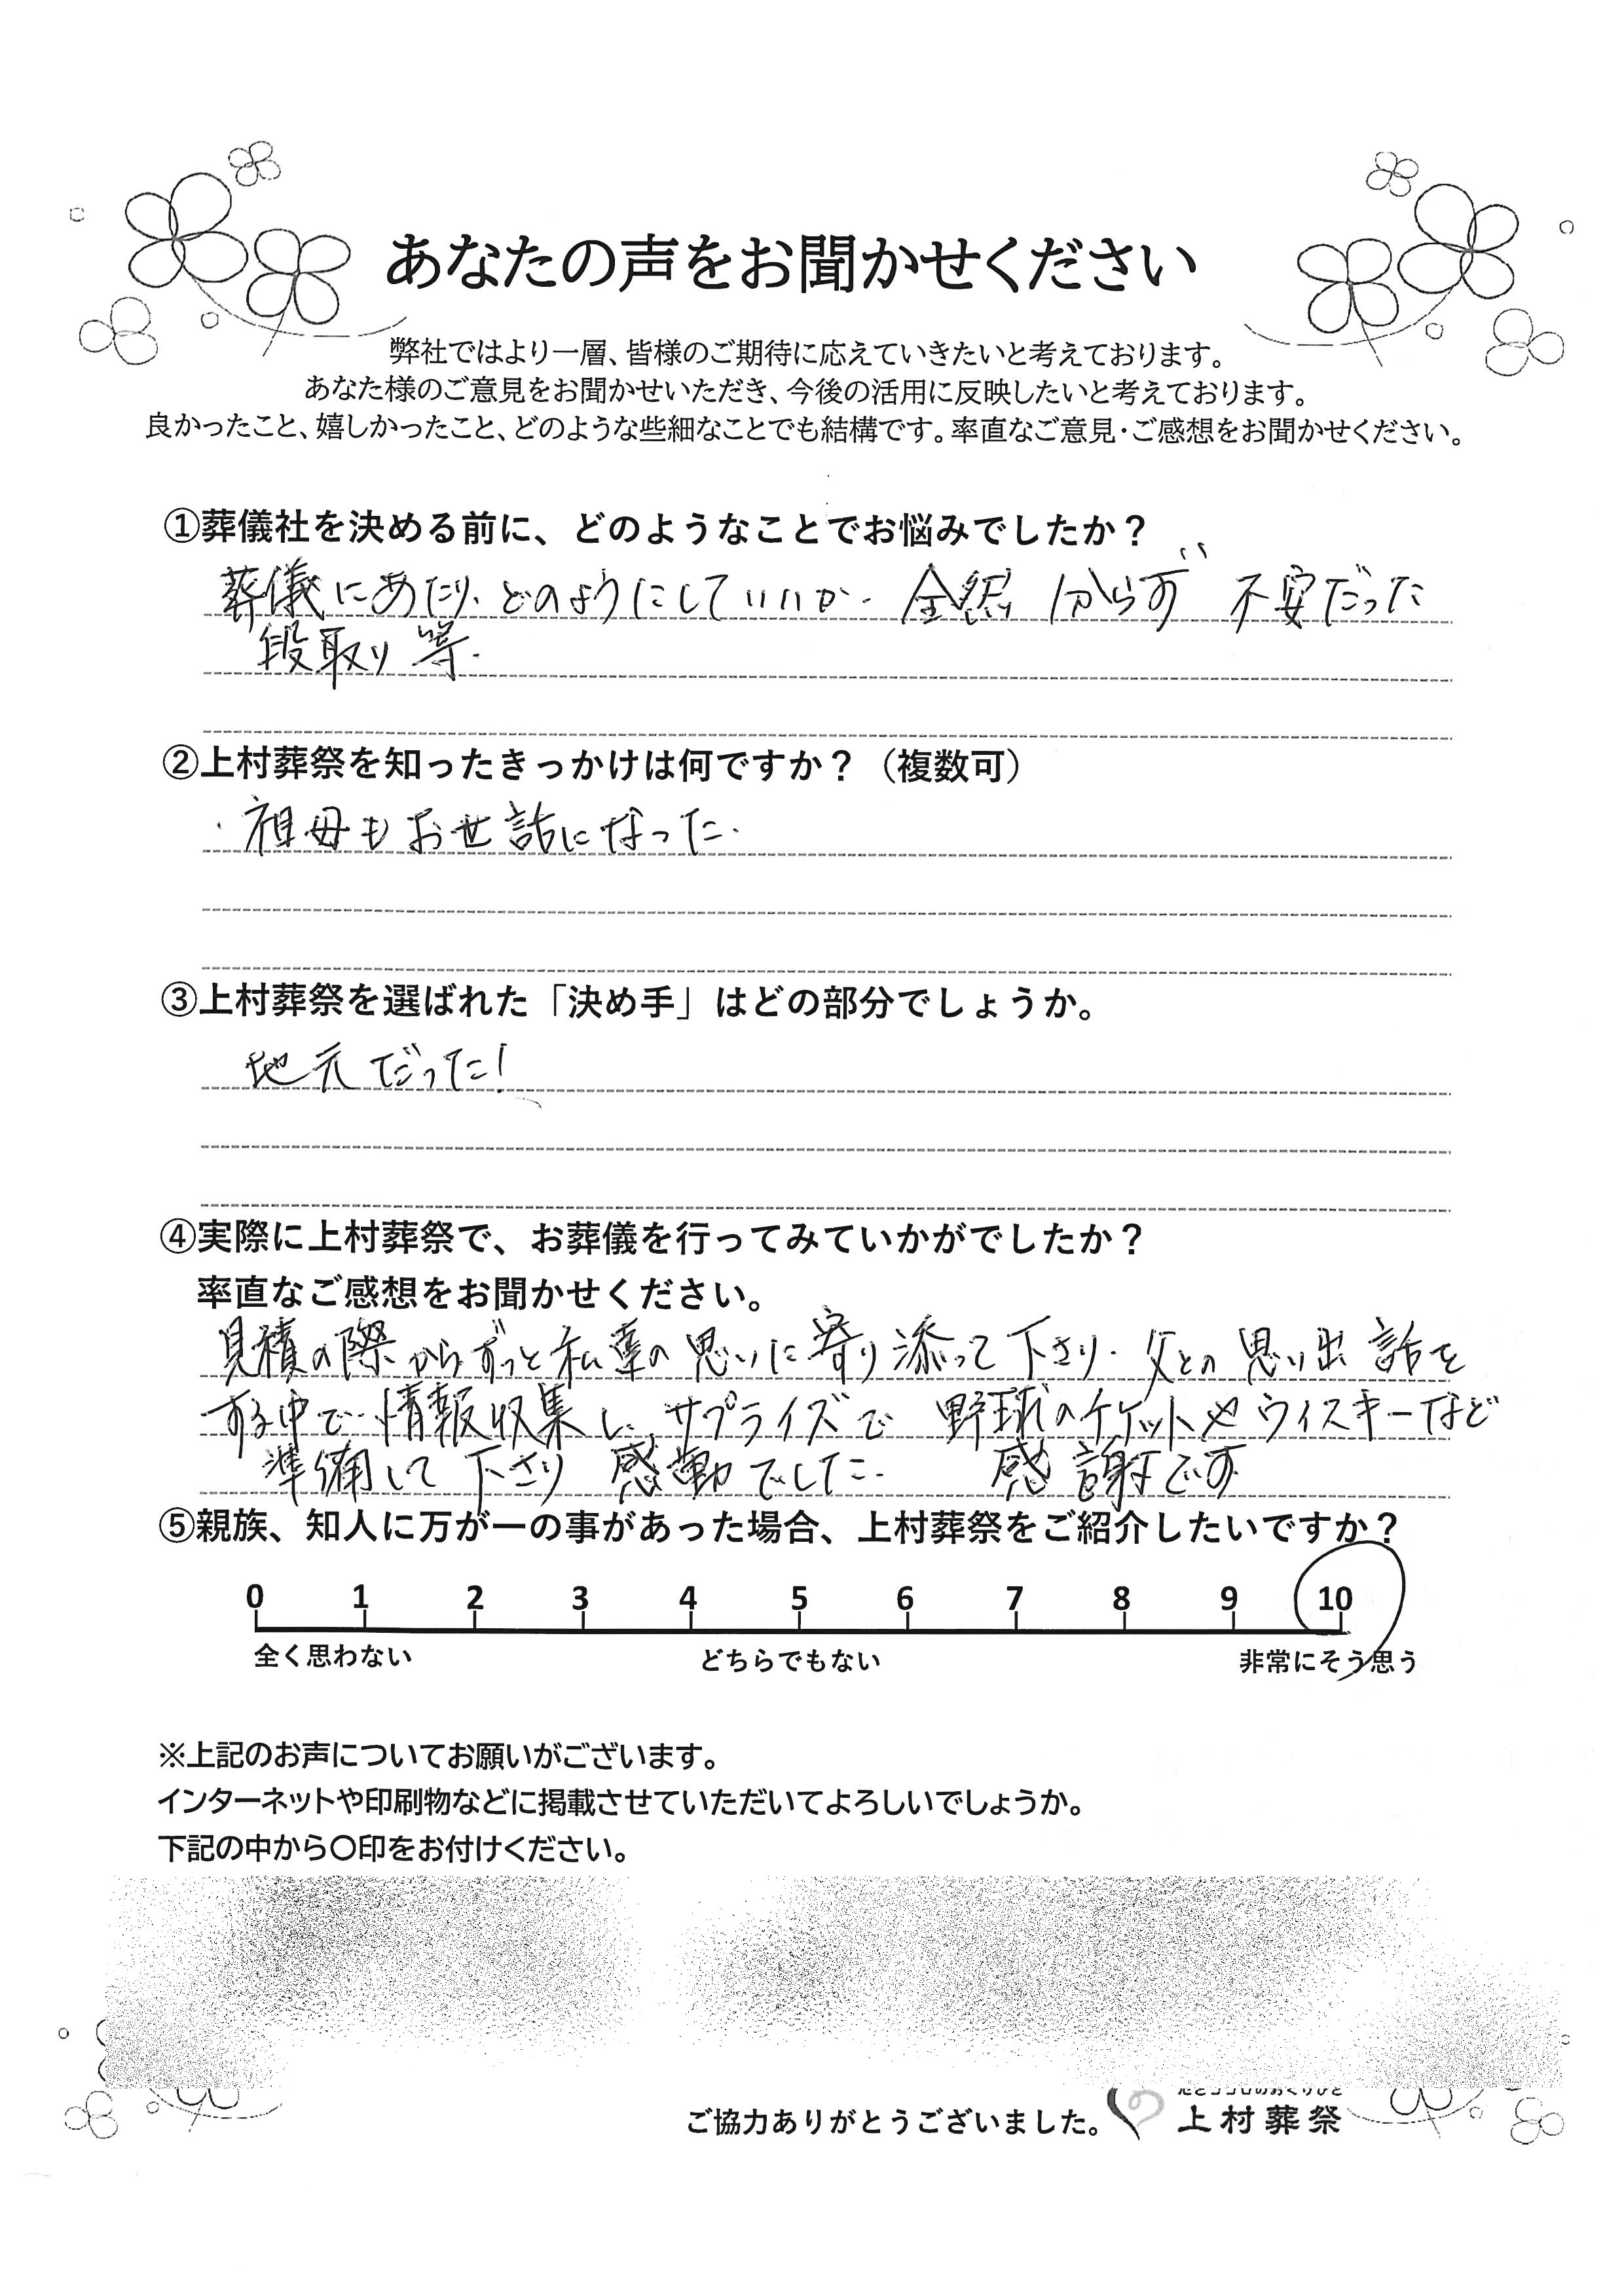 あなたの声をお聞かせください
弊社ではより一層、皆様のご期待に応えていきたいと考えております。
あなた様のご意見をお聞かせいただき、今後の活用に反映したいと考えております。
良かったこと、嬉しかったこと、どのような些細なことでも結構です。率直なご意見・ご感想をお聞かせください。
①葬儀社を決める前に、どのようなことでお悩みでしたか？
葬儀にあたり、どのようにしていいか、全然分からず不安だった
段取り等.
②上村葬祭を知ったきっかけは何ですか？（複数可）
・祖母もお世話になった.
③上村葬祭を選ばれた「決め手」はどの部分でしょうか。
地元だった!
④実際に上村葬祭で、お葬儀を行ってみていかがでしたか？
率直なご感想をお聞かせください。
見積の際からずっと私達の思いに寄り添って下さり、父との思い出話を
する中で、情報収集し、サプライズで野球のチケットやウィスキーなど
準備して下さり感動でした. 感謝です
⑤親族、知人に万が一の事があった場合、上村葬祭をご紹介したいですか？
0 1 2 3 4 5 6 7 8 9 10
全く思わない どちらでもない 非常にそう思う
※上記のお声についてお願いがございます。
インターネットや印刷物などに掲載させていただいてよろしいでしょうか。
下記の中から〇印をお付けください。
ご協力ありがとうございました。 上村葬祭